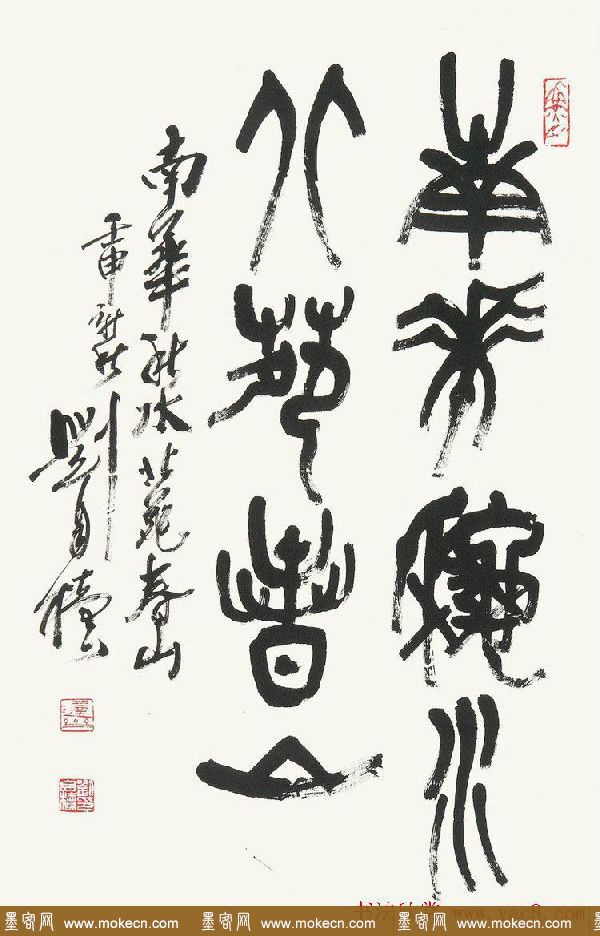 南華秋水
北苑春山
南華秋水北苑春山
壬申秋 劉自櫝
墨客网 www.mokecn.com 墨客网 www.mokecn.com 墨客网 www.mokecn.com 墨客网